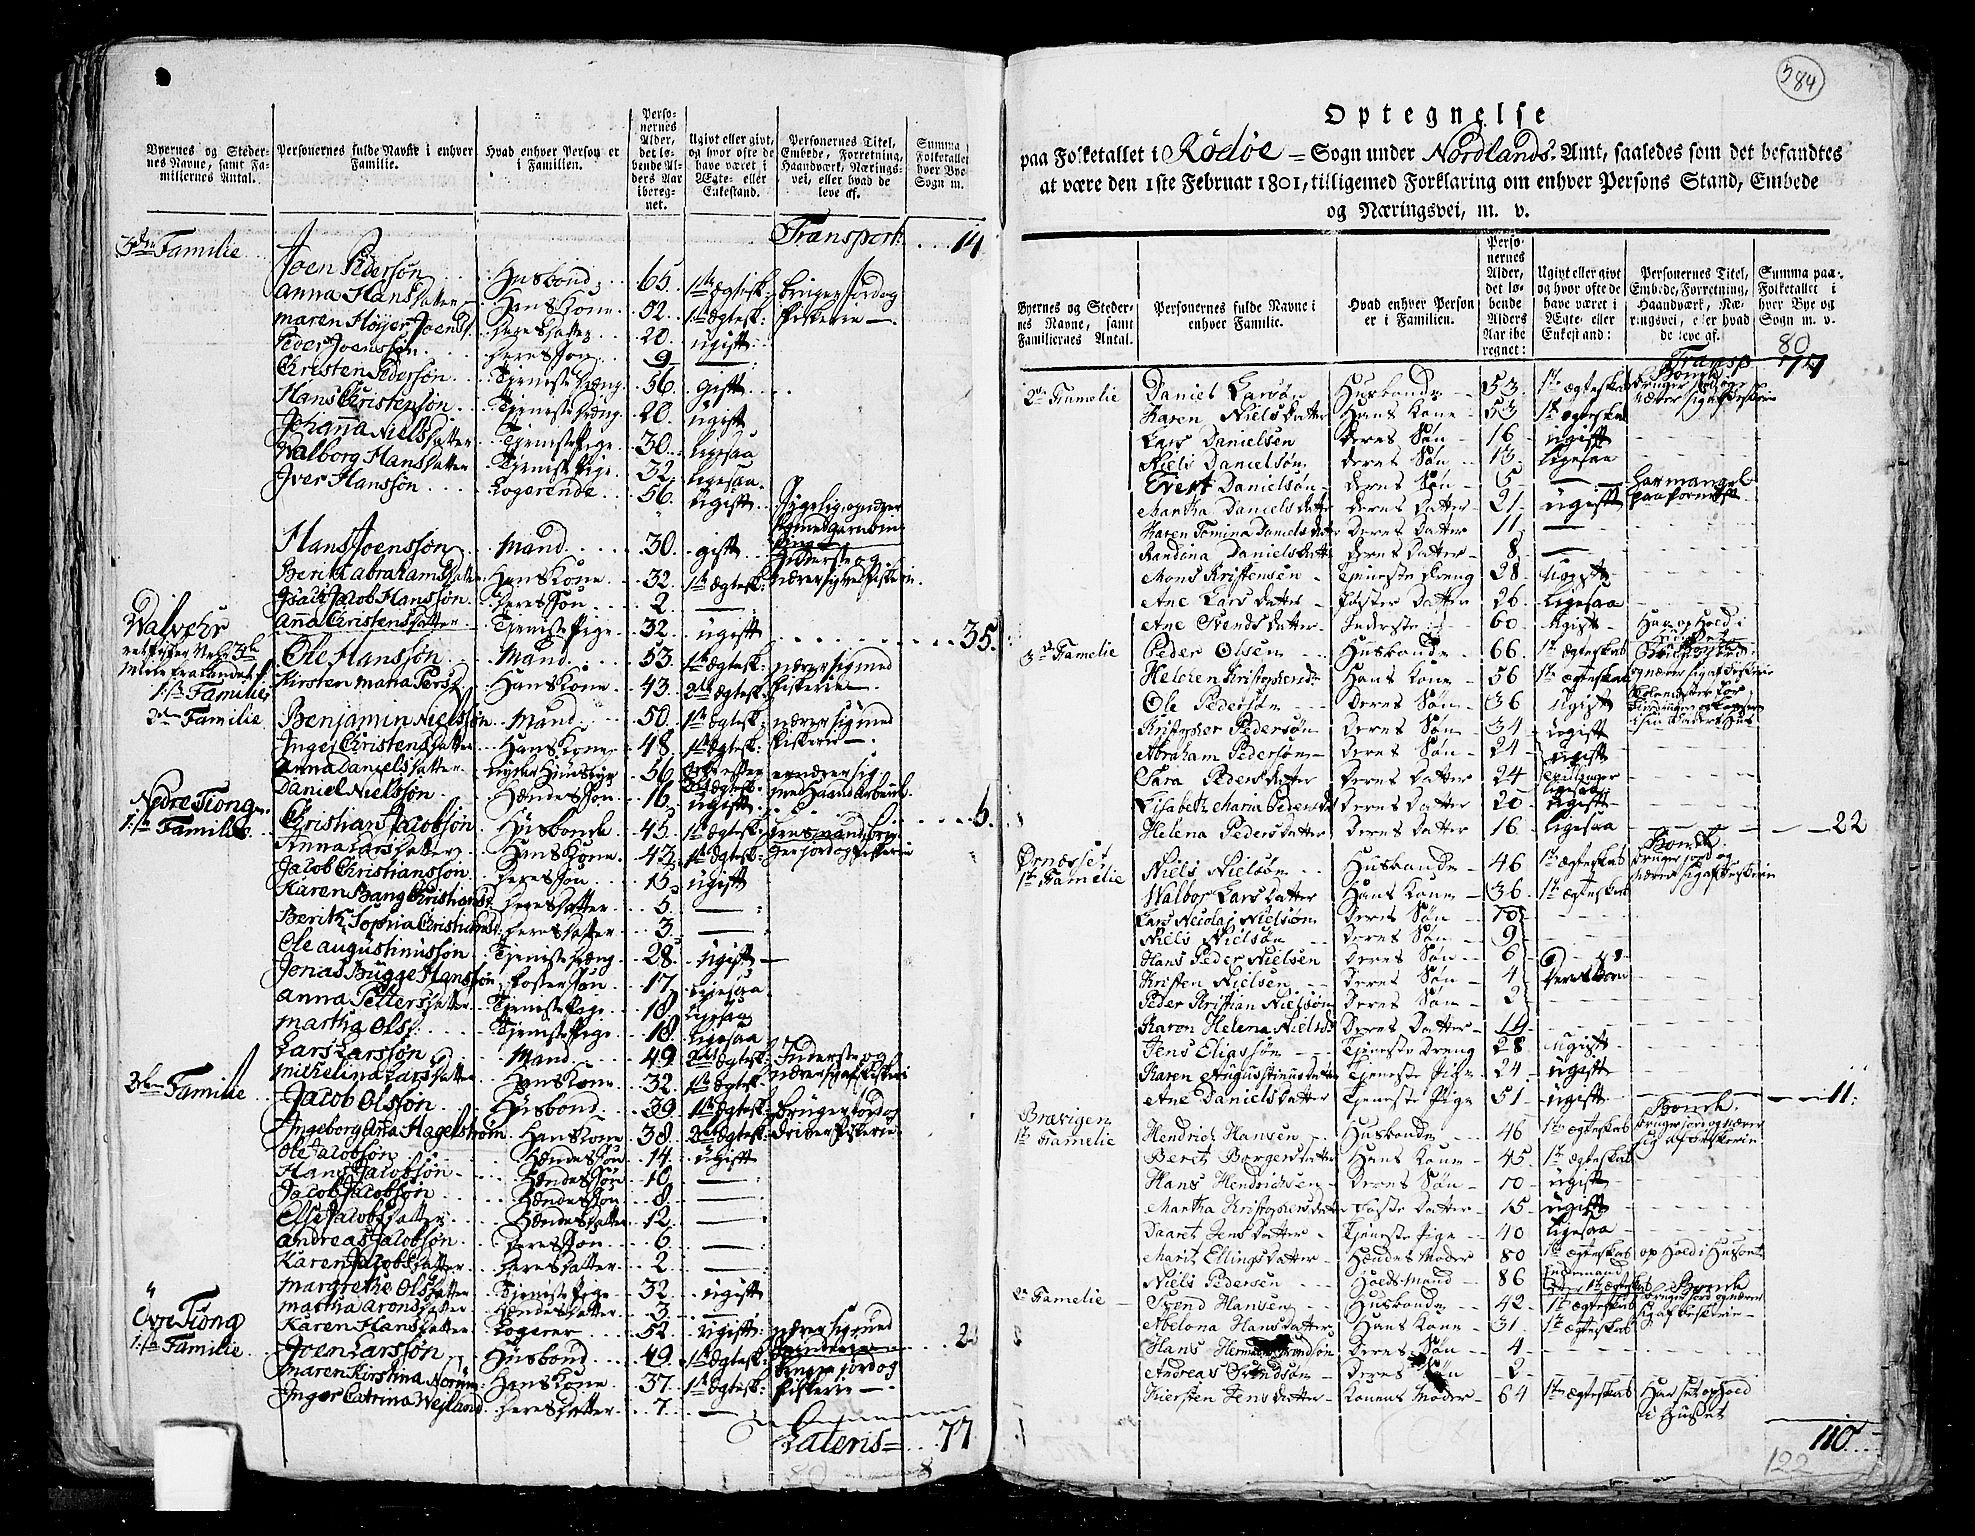 Byernes og Stedernes Navne, samt Familiernes Antal.
Personernes fulde Navne i enhver Familie.
Hvad enhver Person er i Familien.
Personernes Alder, det løbende Alders Aar iberegnet.
Ugivt eller givt, og hvor ofte de have været i Ægte- eller Enkestand.
Personernes Titel, Embede, Forretning, Haandværk, Næringsvei, eller hvad de leve af.
Summa Folketallet i hver Bye og Sogn m. v.
Transport: 14
3die Familie
Joen Pedersøn Husbond 65. 1ste Ægtesk: bruger Jord og
Anna Hansdatter Hans Kone 52. 1ste Ægtesk: fiskerie
Maren Høyer Joensd. deres datter 20. ugift
Peder Joensøn deres Søn 9
Christen Pedersøn Tjeneste dræng 56. gift
Hans Christensøn Tjeneste dræng 20. ugift
Johanna Nielsdatter Tjeneste Pige 30. Ligesaa
Walborg Hansdatter Tjeneste Pige 32. Ligesaa
Iver Hanssøn Logerende 56. ugift
Hans Joenssøn Mand 30. gift
Berith Abrahamsdatter Hans Kone 32. 1ste Ægtesk: nærer sig ved fiskerie
Isach Jacob Hanssøn deres Søn 2.
Ana Christensdatter Tjeneste Pige 32. ugift 35.
Walvehr
1ste Familie
Ole Hanssøn Mand 53. 1ste Ægtesk: nærer sig med
Kirsten Maria Persd. Hans Kone 43. 2det Ægtesk: fiskerie
2den Familie
Benjamin Nielssøn Mand 50. 1ste Ægtesk: nærer sig med
Inger Christensdatter Hans Kone 48. 1ste Ægtesk: fiskerie
Anna Danielsdatter 56 ernærer sig
Daniel Nielssøn hendes Søn 16. ugift med Haand Arbeide 6.
Nedre Tiong
1ste Familie
Christian Jacobsøn Husbonde 45. 1ste Ægtesk:
Anna Larsdatter Hans Kone 42. 1ste Ægtesk: ger jord og fiskerie
Jacob Christianssøn deres Søn 15. ugift
Karen Bang Christiansd. deres datter 5.
Berith Sophia Christiansd. deres datter 3.
Ole Augustinussøn Tjeneste dræng 28. ugift
Jonas Bugge Hanssøn foster søn 17. Ligesaa
Anna Pettersdatter Tjeneste Pige 18. Ligesaa
Martha Ols: Tjeneste Pige 18. Ligesaa
Lars Larssøn Mand 49 2det Ægtesk: Inderste og
Mikelina Larsdatter Hans Kone 32. 1ste Ægtesk: nærer sig af fiskeri
2den Familie
Jacob Olssøn Husbond 39. 1ste Ægtesk: bruger jord og
Ingeborg Ana Hagelstrøm Hans Kone 38. 2det Ægtesk: driver fiskerie
Ole Jacobsøn hendes Søn 14. ugift
Hans Jacobsøn hendes Søn 10.
Jacob Jacobsøn hendes Søn 8.
Else Jacobsdatter hendes datter 12.
Andreas Jacobsøn deres Søn 6
Karen Jacobsdatter deres datter 2.
Margrethe Olsdatter Tjeneste Pige 32. ugift
Martha Aronsdatter hendes datter 3.
Karen Hansdatter Logerer 52. ugift: nærer sig med
Øvre Tiong
1ste Familie
Joen Larssøn Husbond 49. 1ste Ægtesk: bruger jord og
Maren Kirstina Norum Hans Kone 37. 1ste Ægtesk: fiskerie
Inger Catrina Weyland deres datter 7.
Lateris 77
384
Optegnelse
paa Folketallet i Rödöe Sogn under Nordlands Amt, saaledes som det befandtes
at være den 1ste Februar 1801, tilligemed Forklaring om enhver Persons Stand, Embede
og Næringsvei, m. v.
Byernes og Stedernes Navne, samt Familiernes Antal.
Personernes fulde Navne i enhver Familie.
Hvad enhver Person er i Familien.
Personernes Alder, det løbende Alders Aar iberegnet:
Ugivt eller givt og hvor ofte de have været i Ægte- eller Enkestand:
Personernes Titel, Embede, Forretning, Haandværk, Næringsvei, eller hvad de leve af.
Summa paa Folketallet i hver Bye og Sogn m. v.
80
Transp 77
2de Famelie
Daniel Larsøn Husbonde 53. 1ste Ægteskab
Karen Nielsdatter Hans Kone 53 1ste Ægteskab
Lars Danielsen Deres Søn 16 ugift
Niels Danielsøn Deres Søn 13 Ligesaa
Evert Danielsøn Deres Søn 5
Martha Danielsdatter Deres Datter 21 ugift
Karen Tomina Danielsdatter Deres Datter 11
Randina Danielsdatter Deres Datter 8
Mons Kristensen Tjeneste Dreng 28 Ugift
Ane Larsdatter Foster Datter 26 Ligesaa
Ane Svendsdatter Inderste 60 Ugift
3de Famelie
Peder Olsen Husbonde 66 1ste Ægteskab
Helören Kristophersd. Hans Kone 56 1ste Ægteskab
Ole Pedersøn Deres Søn 36 Ugift
Kristopher Pedersøn Deres Søn 34 Ugift
Abraham Pedersøn Deres Søn 24 ugift
Sara Pedersdatter Deres Datter 24
Lisabeth Maria Pedersd. Deres Datter 20 Ugift
Helena Pedersdatter Deres Datter 16 Ligesaa 22
Ørnæsset
1ste Famelie
Niels Nielsøn Husbonde 46 1ste Ægteskab
Walbor Larsdatter Hans Kone 36 1ste Ægteskab
Lars Nicolaj Nielsøn Deres Søn
Niels Nielsøn Deres Søn 9
Hans Peder Nielsen Deres Søn 6
Kristen Nielsen Deres Søn 4 Deres Børn
Peder Kristian Nielsøn Deres Søn 2
Karen Helena Nielsd. Deres Datter
Jens Eliassøn Tjeneste Dreng 28 ugift
Karen Augustinusdatter Tjeneste Pige 24 ugift
Ane Danielsdatter Tjeneste Pige 51 ugift 11.
Bræsigen
1ste Famelie
Hendrich Hansen Husbonde 46 1ste Ægteskab
Berit Borgersdatter Hans Kone 45 1ste Ægteskab
Hans Hendrichsen Deres Søn 10 ugift
Martha Kristophersdatter Foster Datter 15 ugift
Daaret Jensdatter Tjeneste Pige 40 Ligesaa
Marit Ellingsdatter Hendes Moder 80 1ste Ægteskab op Hold i Huset
Niels Pedersen Holds Mand 86
2de Famelie
Svend Hansen Husbonde 42 1ste Ægteskab
Abelona Hansdatter Hans Kone 31 1ste Ægteskab
Hans Svendsøn Deres Søn 4
Andreas Svendsøn Deres Søn 2
Kiersten Jensdatter Konens Moder 64 1ste Ægteskab Har sit ophold
i Huset
110
122